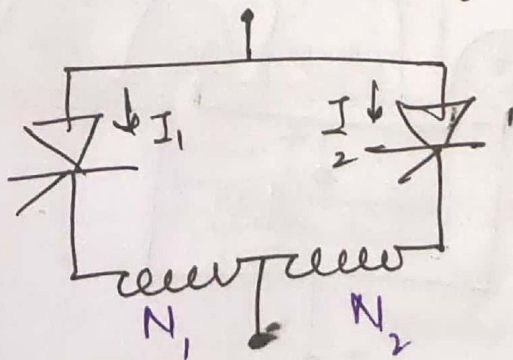 I₁
I₂
N₁
N₂